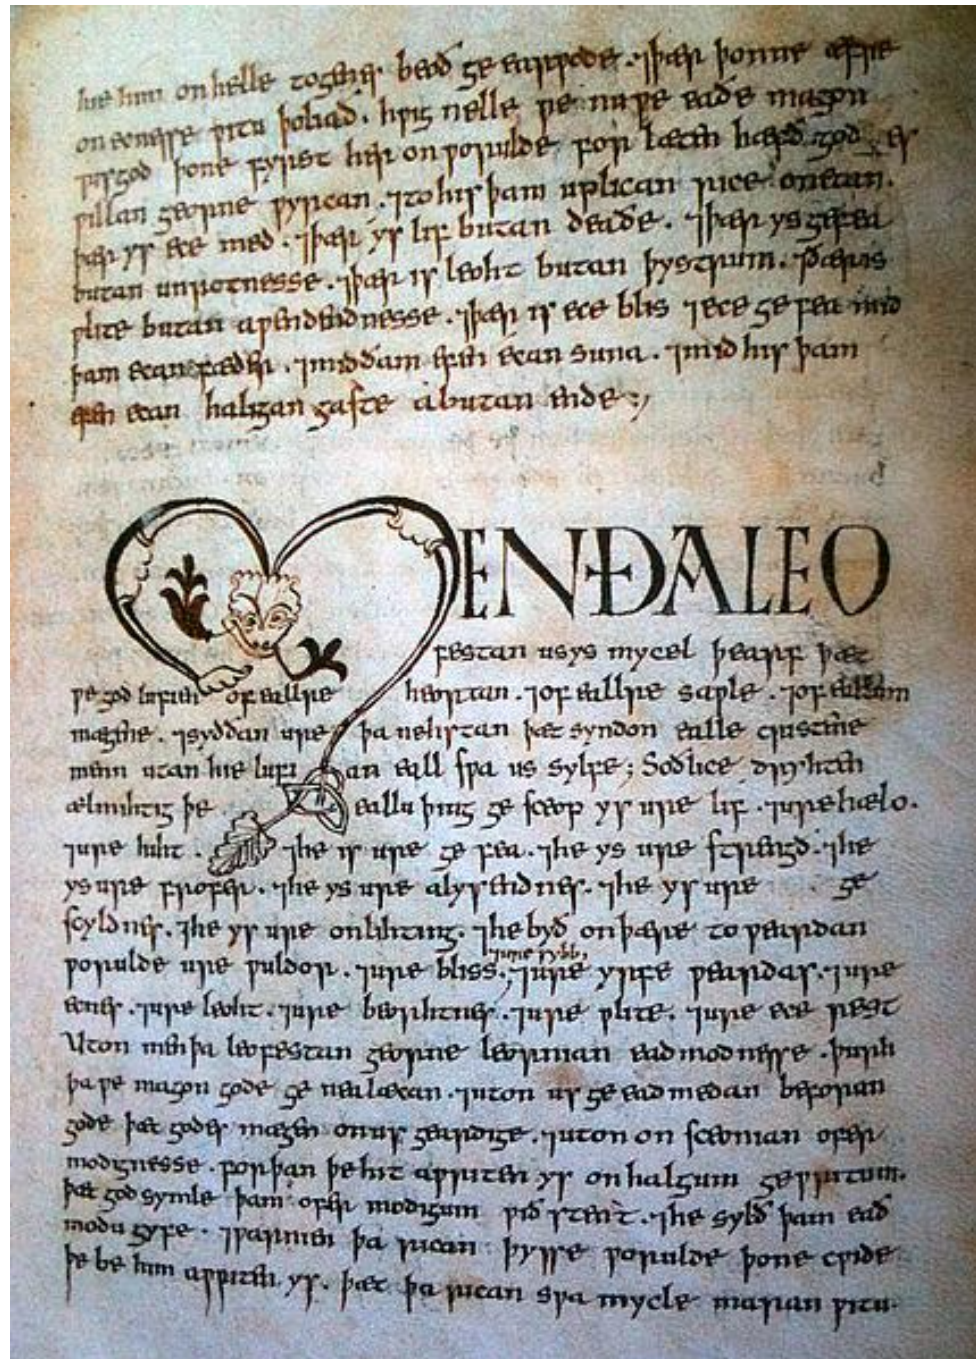 hie him on helle togæder beoð ge earwode. ⁊þær þonne æfre
on ecnesse witu þoliað. hwig nelle we nu þe eaðe magon
þone fyrst her on worulde for læten hæfð god
willan georne wyrcan. ⁊to his þam uplican rice onettan.
þær ys ece med. ⁊þær ys lif butan deaðe. ⁊þær ys gefea
butan unrotnesse. ⁊þær is leoht butan þystrum. ⁊þær is
wlite butan awendednesse. ⁊þær is ece blis ⁊ece ge fea mid
þam ecan fæder. ⁊mid ðam efen ecan suna. ⁊mid his þam
efen ecan halgan gaste á butan ende:,
MEN ÐA LEO
festan us ys mycel þearf þæt
we god lufien of eallre heortan. ⁊of eallre sawle. ⁊of eallum
mægene. ⁊syððan ure þa nehstan þæt syndon ealle cristene
menn utan hie lufi an eall swa us sylfe; Soðlice drihten
ælmihtig þe ealle þing ge sceop ys ure lif. ⁊ure hælo.
⁊ure hiht. ⁊he is ure ge fea. ⁊he ys ure strengð. ⁊he
ys ure frofer. ⁊he ys ure alysendnes. ⁊he ys ure ge
scyldnes. ⁊he ys ure onlihting. ⁊he byð on þære to weardan
worulde ure wuldor. ⁊ure bliss. ⁊ure sybb, ⁊ure yrfe weardas. ⁊ure
ecnes. ⁊ure leoht. ⁊ure beorhtnes. ⁊ure wlite. ⁊ure ece rest
Uton men þa leofestan georne leornian eadmodnesse. þurh
þa we magon gode ge nealæcan. ⁊uton us ge eadmedan beforan
gode þæt godes mægen on us geardige. ⁊uton on scunian ofer
modignesse. forþan þe hit awriten ys on halgum gewritum.
þæt god symle þam ofer modigum wið stent. ⁊he sylð þam ead
modu gyfe. ⁊warnien þa rican þysse worulde þone cwide
þe be him awriten ys. þæt þa rican swa mycle maran witu